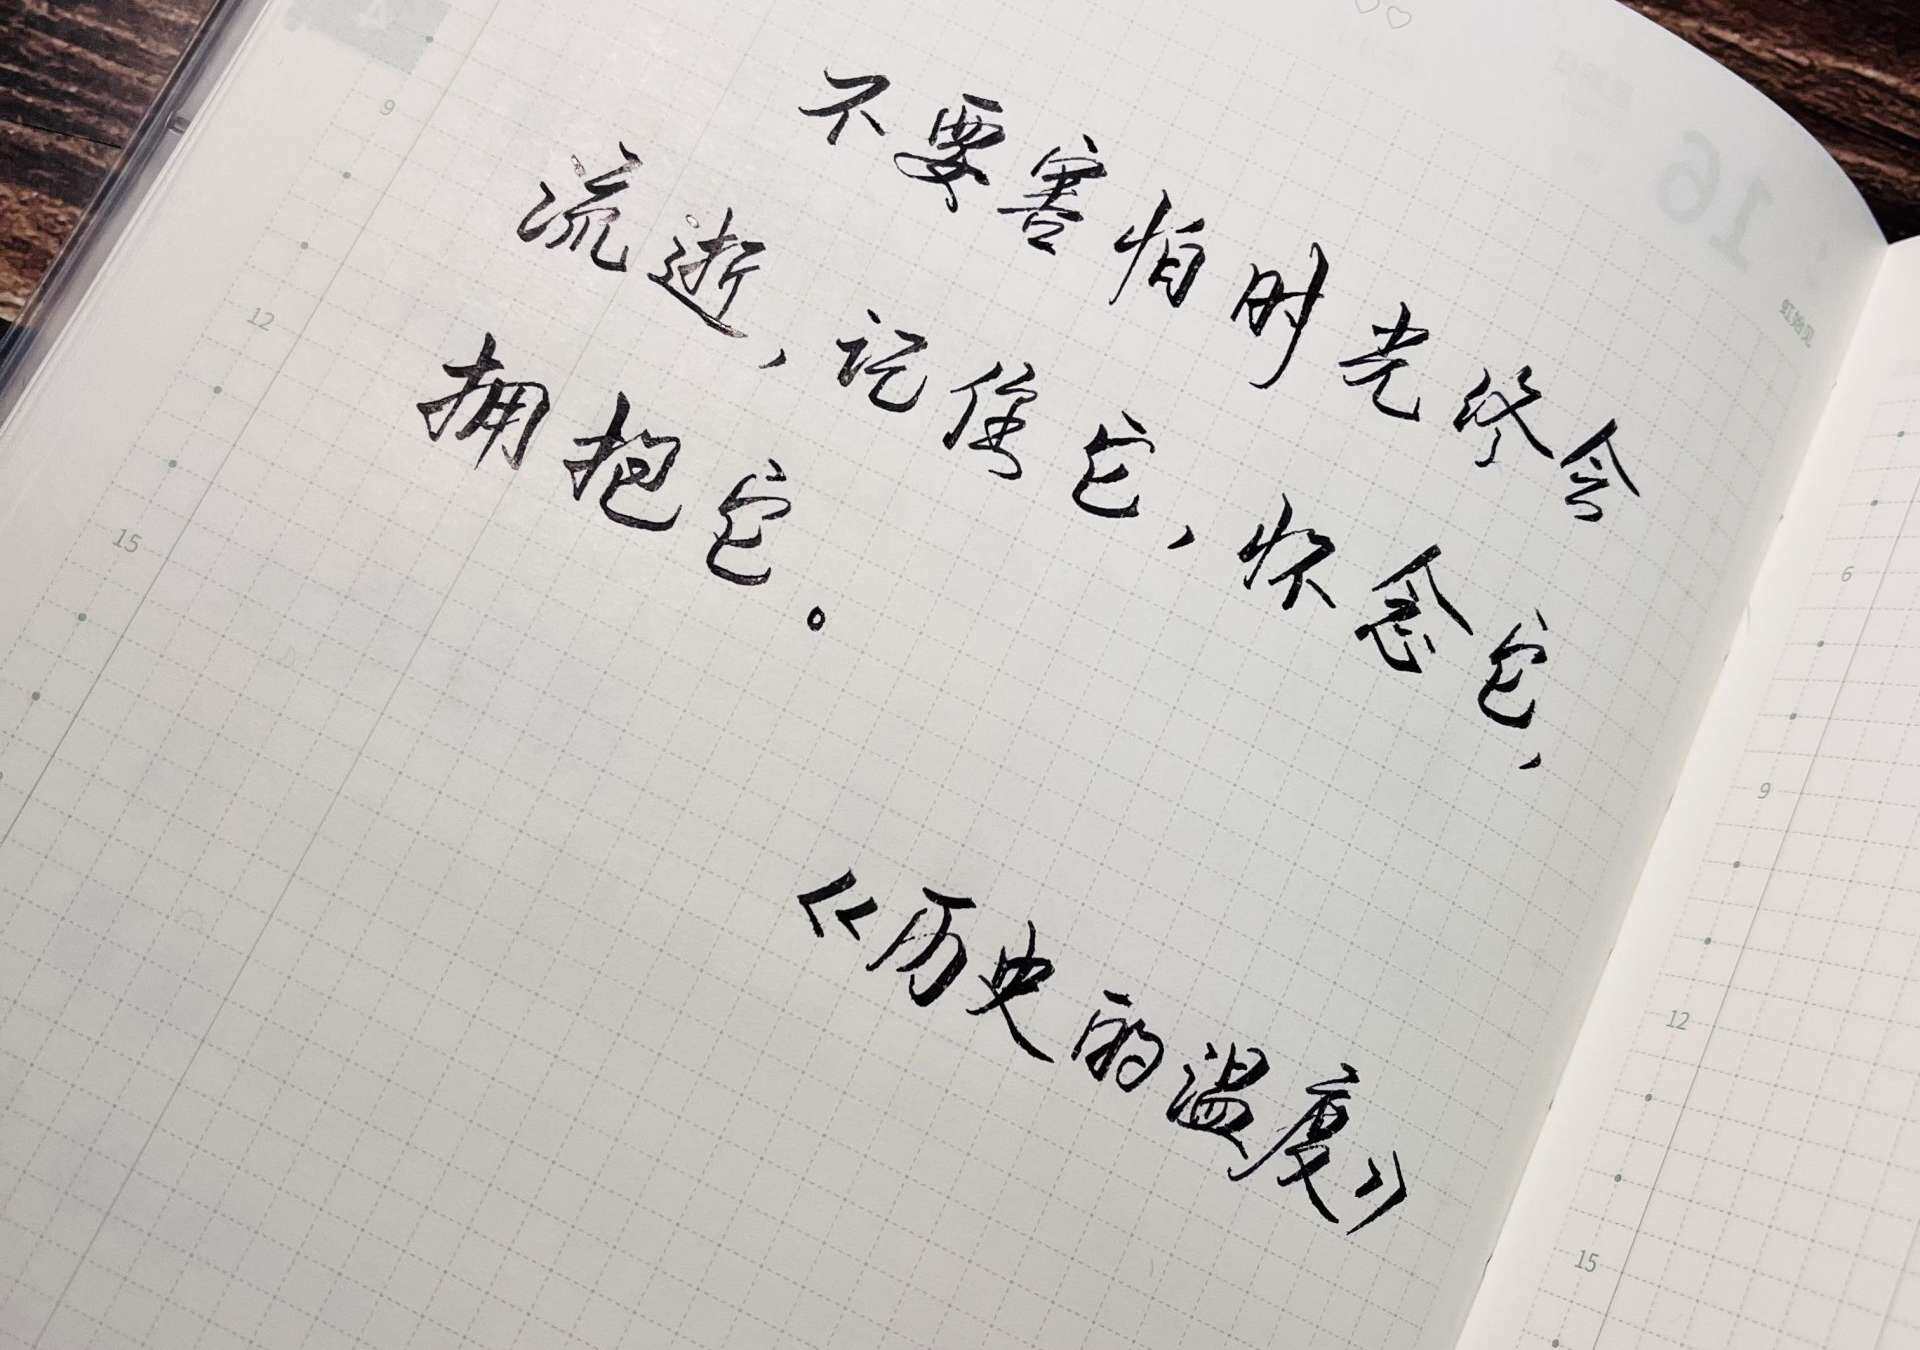 不要害怕时光终会
流逝,记住它,怀念它,
拥抱它。
《历史的温度》
9
12
15
16
6
9
12
15